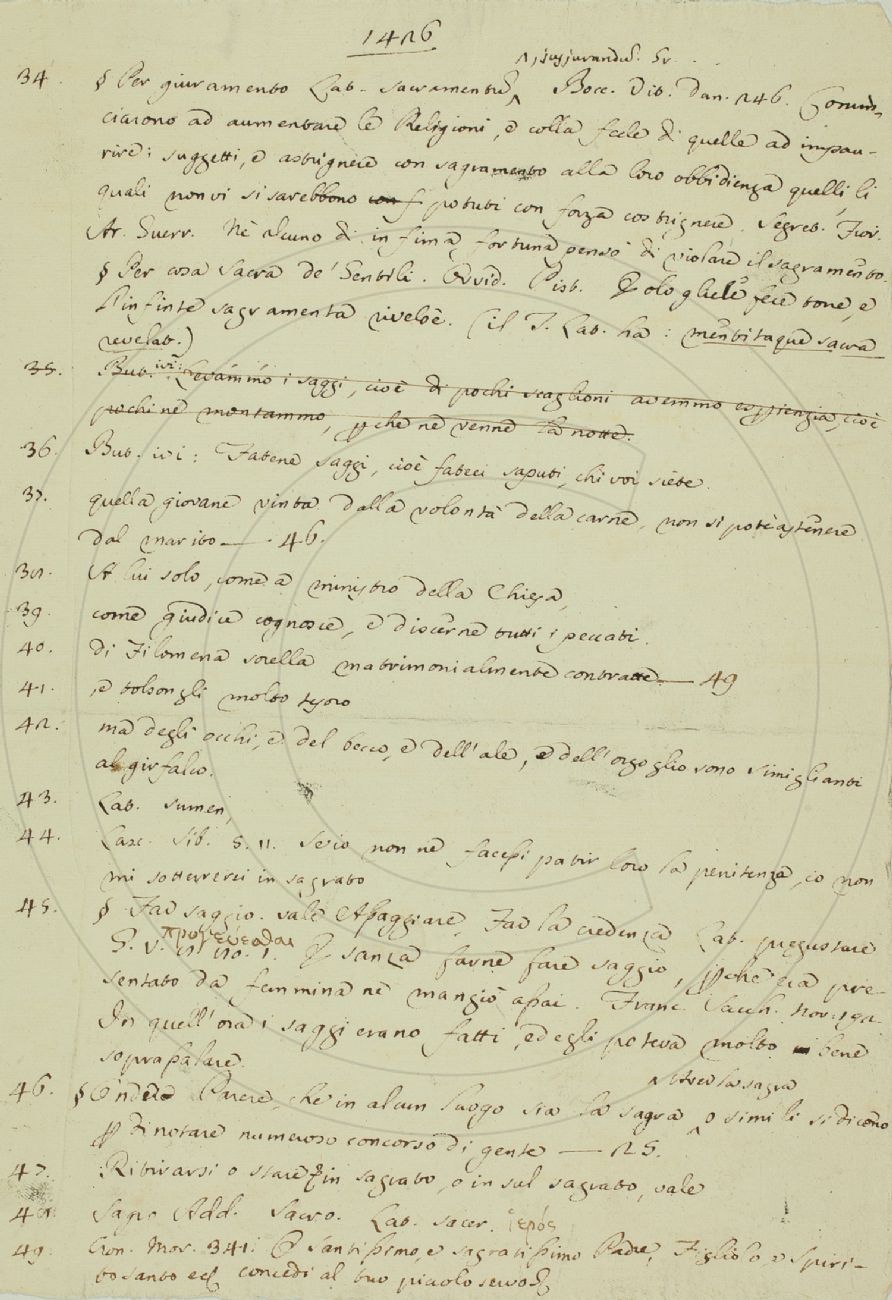 1426
^, jusjurandu. Gr. . .
34. § Per giuramento Lat. sacramentu^, Bocc. Vit. Dan. 246. Comin-
ciarono ad aumentare le Religioni, e colla fede di quelle ad impau-
rire i suggetti, e astrignere con sagramento alla loro obbidienza quelli, li
quali non vi si sarebbono con f potuti con forza costrignere. Segret. Fior.
Ar. Guerr. Nè alcuno di infima fortuna pensò di violare il sagramento.
§ Per cosa Sacra de' Gentili. Ovvid. Pist. Egli fece bone, e
l'infinte sagramenta riveloe. (il T. Lat. ha: mentitaque sacra
revelat.)
35. But. ivi: Levammo i saggi, cioè di pochi scaglioni avemmo esperienza, cioè
pochi ne montammo, perche ne venne la notte.
36. But. ivi: Fatene saggi, cioè fateci saputi, chi voi siete.
37. quella giovane vinta dalla volontà della carne, non si potè astenere
dal marito — . 46.
38. A lui solo, come a ministro della Chiesa,
39. come giudice cognosce, e discerne tutti i peccati.
40. di Filomena sorella matrimonialmente contratte — 49
41. e tolsongli molto tesoro
42. ma degli occhi, e del becco, e dell'ale, e dell'orgoglio sono simiglianti
al girfalco.
43. Lat. sumen,
44. Lasc. Sib. 5. 11. Se io non ne facessi patir loro la penitenza, io non
mi sotterrerei in sagrato
45. § Far saggio. vale Assaggiare, Far la credenza Lat. pregustare
G. V. 1. E sanza farne fare saggio, perche era pre-
προγεύεσθαι
sentato da femmina ne mangiò assai. Franc. Sacch. nov. 192.
In quell'ora i saggi erano fatti, ed egli poteva molto bene
soprassalare.
^ v'è la sagra
46. § Onde Parere, che in alcun luogo sia la sagra^ o simili si dicono
per dinotare numeroso concorso di gente — 25.
47. Ritirarsi o stare in sagrato, o in sul sagrato, vale
48. Sagro Add. Sacro. Lat. sacer. ἱερός
49. Gon. Mor. 341: O Santissimo, e sagratissimo Padre, Figliolo, e Spiri-
to santo ec. concedi al tuo picciolo servo